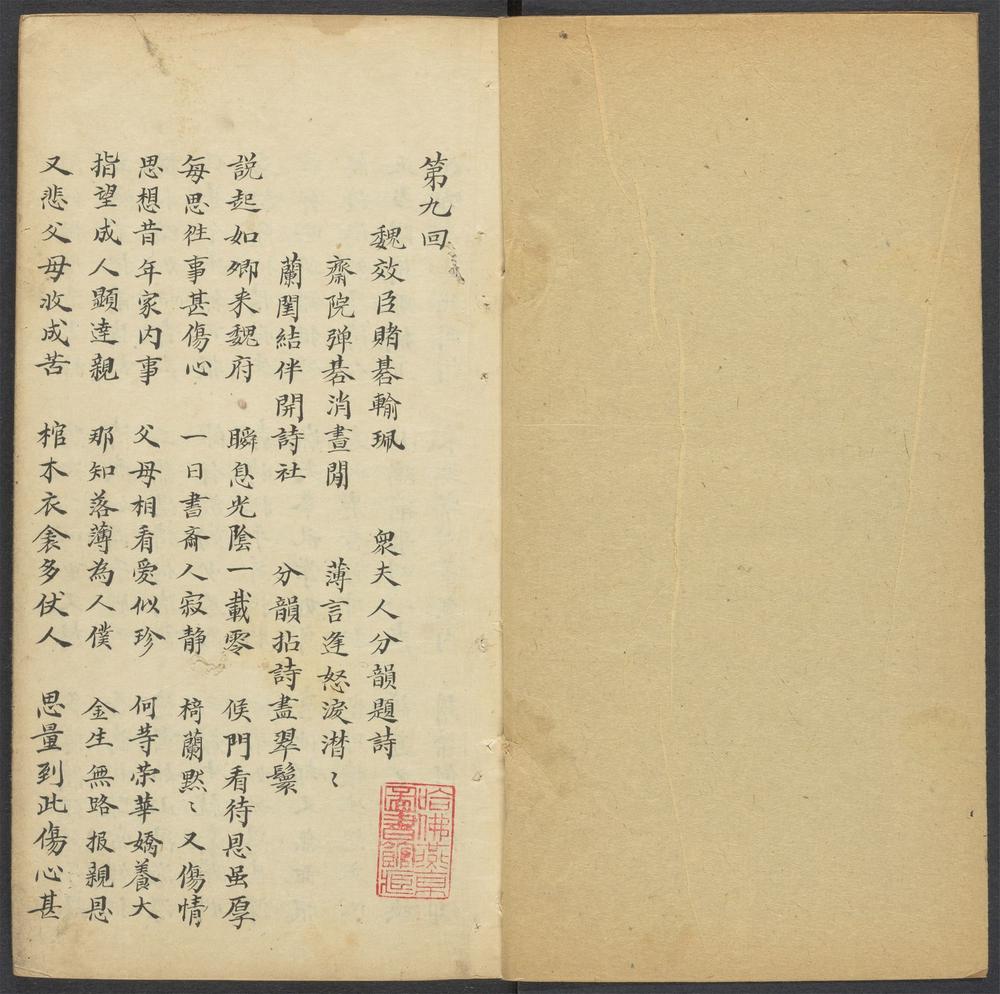 第九回
魏效臣賭碁輸珮　衆夫人分韻題詩
齋院弹碁消晝閒　薄言逢怒淚潸〻
蘭閨結伴開詩社　分韻拈詩盡翠鬟
説起如卿来魏府　瞬息光陰一載零　候門看待恩虽厚
每思徃事甚傷心　一日書斋人寂静　椅蘭默〻又傷情
思想昔年家内事　父母相看爱似珍　何等荣華嬌養大
指望成人顕達親　那知落薄為人僕　金生無路报親恩
又悲父母收成苦　棺木衣衾多仗人　思量到此傷心甚
哈佛燕京
圖書館印